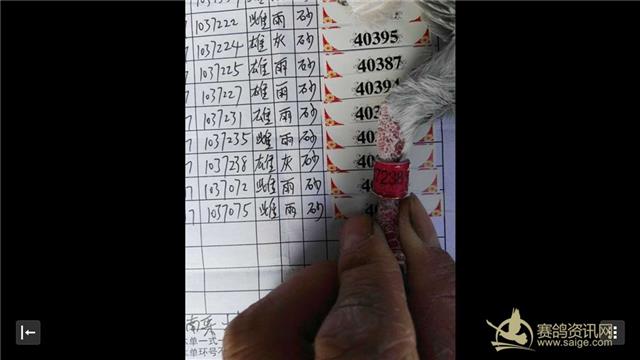 1037222 雌 雨 砂
1037224 雄 灰 砂 40395
1037225 雄 雨 砂 40387
1037227 雄 雨 砂 40394
1037231 雄 雨 砂
1037235 雌 雨 砂
1037238 雄 灰 砂
1037072 雌 雨 砂
1037075 雌 雨 砂
7238
单一式
单环号
赛鸽资讯网
www.saige.com